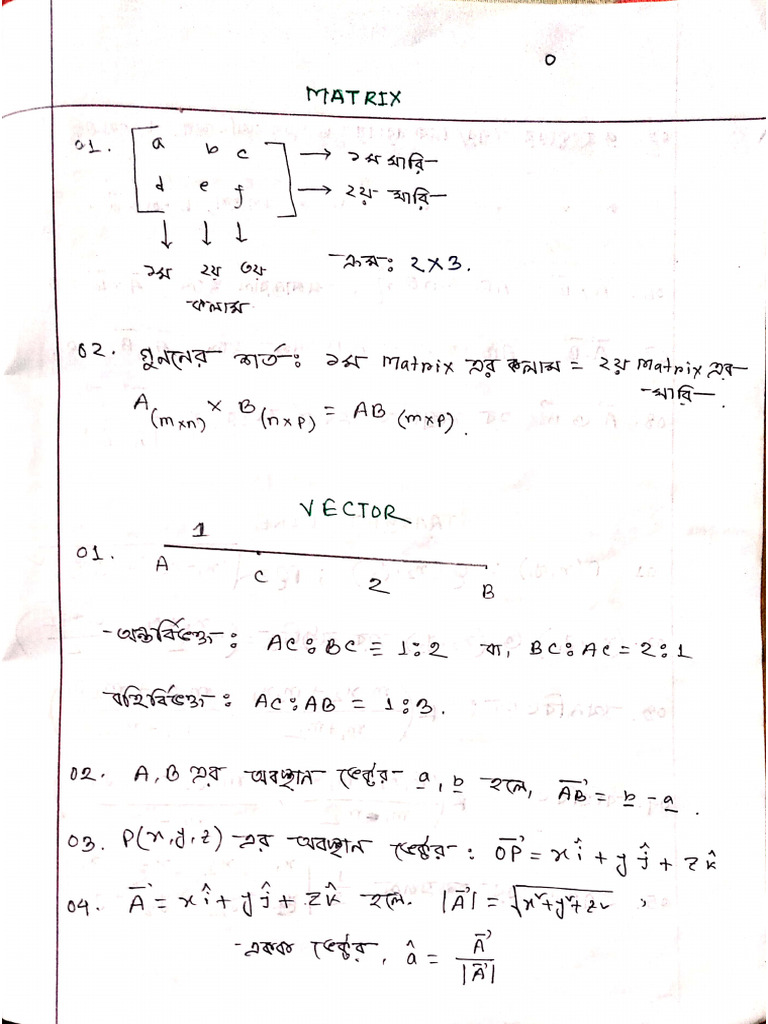 0
MATRIX
01. [a b c] → ১ম সারি
[d e f] → ২য় সারি
↓ ↓ ↓
১ম ২য় ৩য় ক্রম: 2×3.
কলাম
02. গুননের শর্ত: ১ম Matrix এর কলাম = ২য় Matrix এর
সারি.
A(m×n) × B(n×p) = AB(m×p).
VECTOR
1
01.
A C 2 B
অন্তর্বিভক্ত: AC:BC = 1:2 বা, BC:AC = 2:1
বহির্বিভক্ত: AC:AB = 1:3.
02. A, B এর অবস্থান ভেক্টর a̲, b̲ হলে, A⃗B⃗ = b̲ - a̲.
03. P(x,y,z) এর অবস্থান ভেক্টর: O⃗P⃗ = xî + yĵ + zk̂
04. A⃗ = xî + yĵ + zk̂ হলে. |A⃗| = √x²+y²+z²,
একক ভেক্টর, â = A⃗/|A⃗|